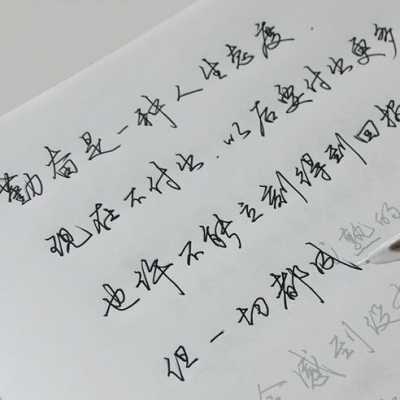 勤奋是一种人生态度
现在不付出.以后要付出更多
也许不能立刻得到回报
但一切都成熟的
会感到没